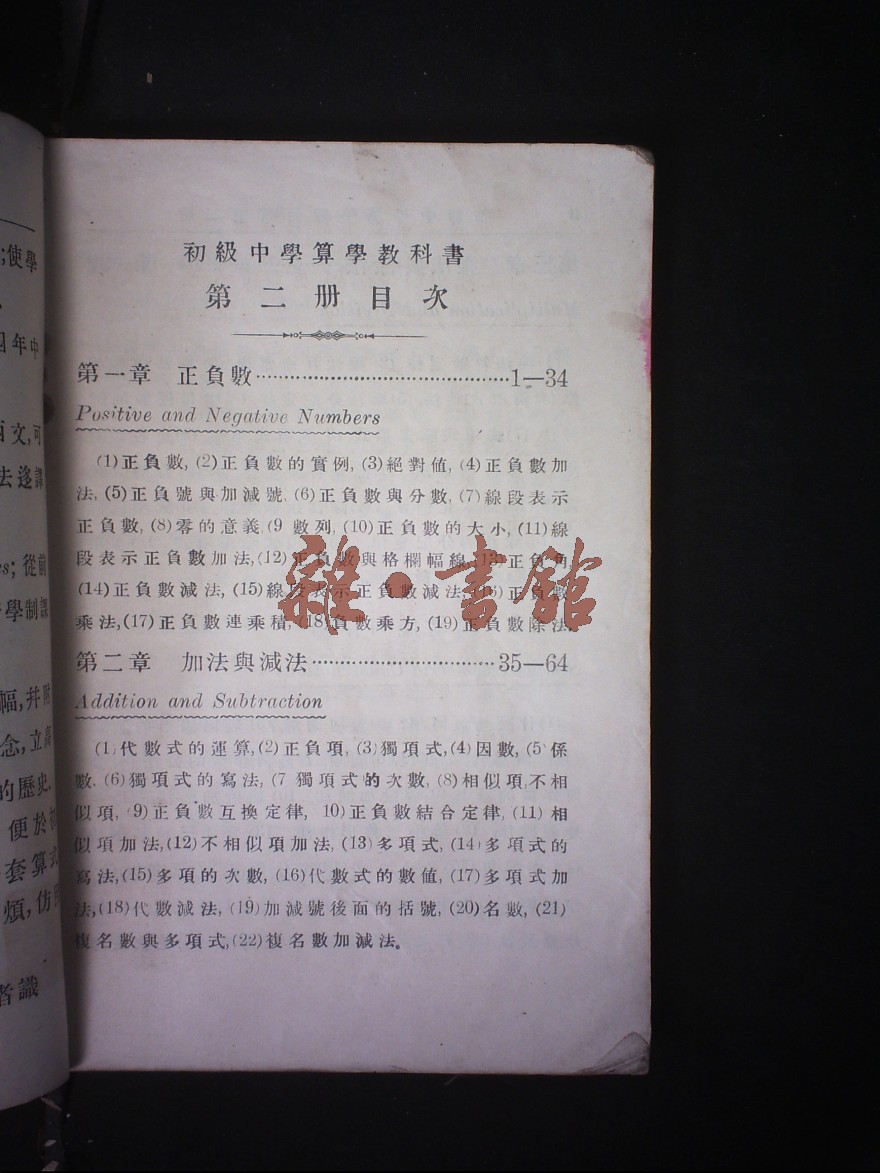 ;使學
年中
文,可
去逐譯
es; 從前
學制課
幅,幷附
念,立
的歷史,
便於初
套算式
煩,仿
者識
初級中學算學教科書
第二册目次
第一章 正負數……………………………………1—34
Positive and Negative Numbers
(1)正負數, (2)正負數的實例, (3)絕對値, (4)正負數加
法, (5)正負號與加減號, (6)正負數與分數, (7)線段表示
正負數, (8)零的意義, (9 數列, (10)正負數的大小, (11)線
段表示正負數加法, (12)正負數與格欄幅線, (13)正負角,
(14)正負數減法, (15)線段表示正負數減法, (16)正負數
乘法, (17)正負數連乘積, (18)負數乘方, (19)正負數除法.
第二章 加法與減法……………………………35—64
Addition and Subtraction
(1)代數式的運算, (2)正負項, (3)獨項式, (4)因數, (5)係
數, (6)獨項式的寫法, (7 獨項式的次數, (8)相似項,不相
似項, (9)正負數互換定律, 10)正負數結合定律, (11)相
似項加法, (12)不相似項加法, (13)多項式, (14)多項式的
寫法, (15)多項的次數, (16)代數式的數値, (17)多項式加
法, (18)代數減法, (19)加減號後面的括號, (20)名數, (21)
複名數與多項式, (22)複名數加減法。
雜·書館